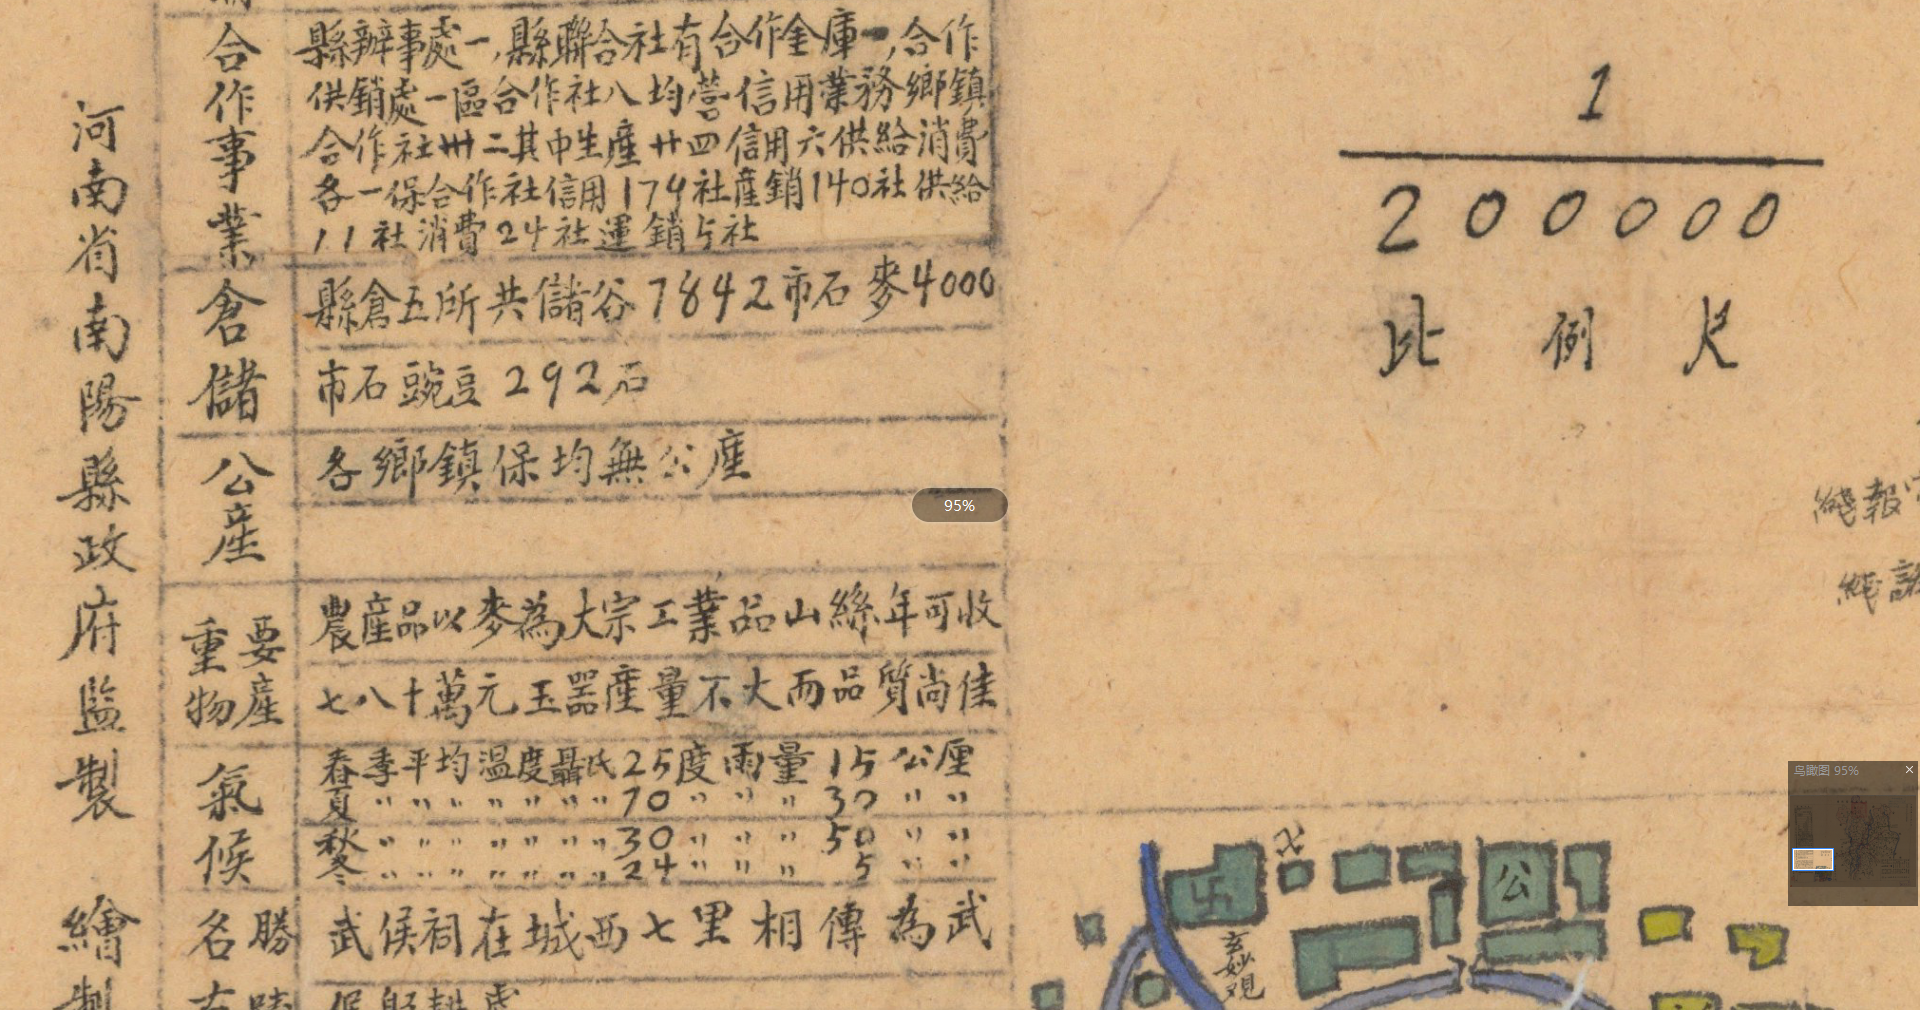 河南省南陽縣政府監製 繪製
合作事業
縣辦事處一,縣聯合社有合作金庫一,合作
供銷處一區合作社八均營信用業務鄉鎮
合作社卅二其中生產廿四信用六供給消費
各一保合作社信用174社產銷140社供給
11社消費24社運銷5社
倉儲
縣倉五所共儲谷7842市石麥4000
市石豌豆292石
公產
各鄉鎮保均無公產
重要物產
農產品以麥為大宗工業品山絲年可收
七八十萬元玉器產量不大而品質尚佳
氣候
春季平均溫度聶氏25度雨量15公厘
夏〃〃〃〃〃〃〃70〃〃〃30〃〃
秋〃〃〃〃〃〃〃30〃〃〃50〃〃
冬〃〃〃〃〃〃〃24〃〃〃5〃〃
名勝
武侯祠在城西七里相傳為武
1
200000
比例尺
綫報
綫
95%
鸟瞰图 95%
卐
公
玄妙观